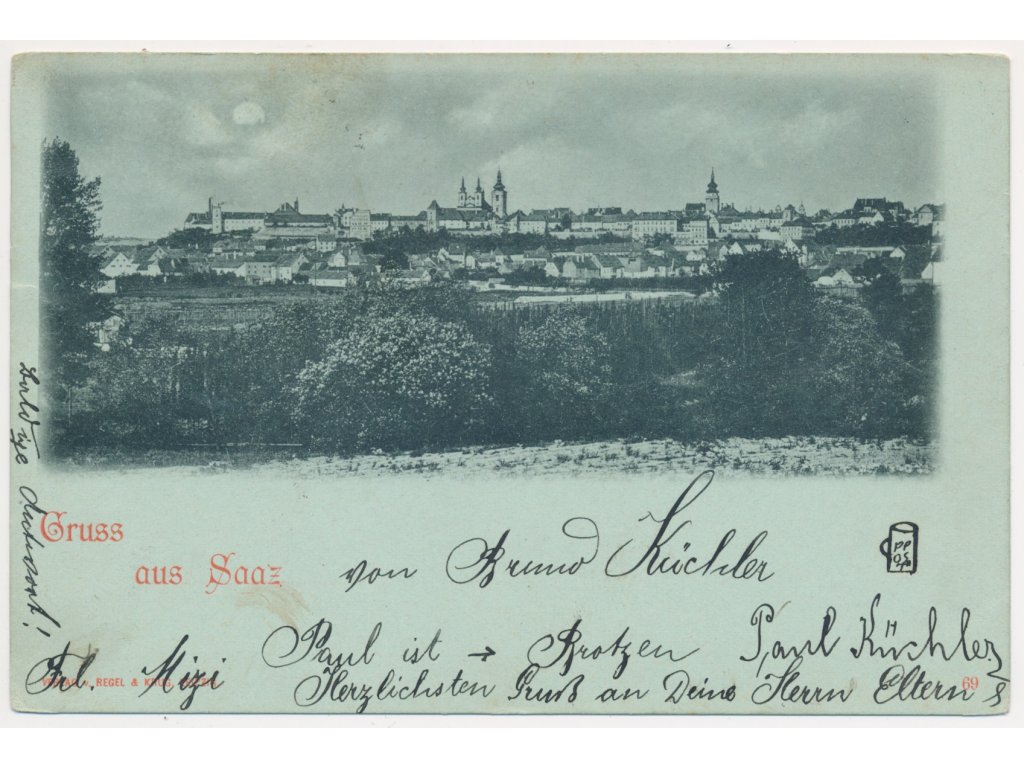 Gruss
aus Saaz
von Bruno Küchler
Paul ist → Brotzen
Paul Küchler
Frl. Mizi
Herzlichsten Gruß an Deine Herrn Eltern
REGEL & KRUG
69
Baldige Antwort!